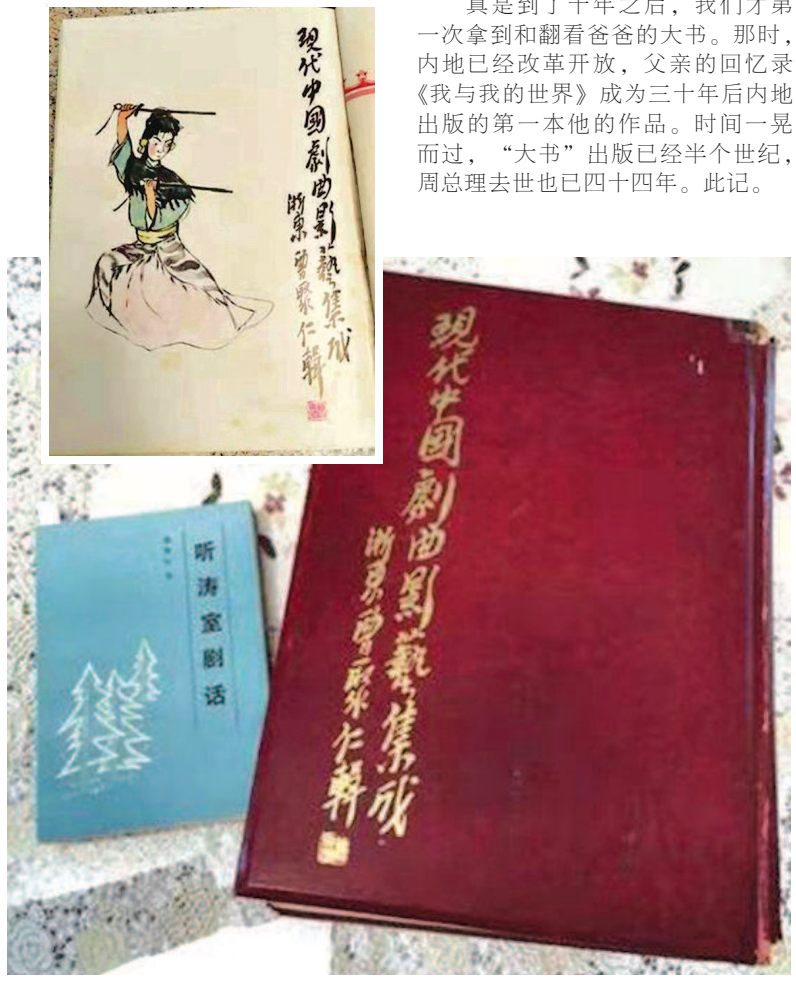 真是到了十年之后，我们才第
一次拿到和翻看爸爸的大书。那时，
内地已经改革开放，父亲的回忆录
《我与我的世界》成为三十年后内地
出版的第一本他的作品。时间一晃
而过，“大书”出版已经半个世纪，
周总理去世也已四十四年。此记。
現代中國劇曲影藝集成
浙東曹聚仁輯
現代中國劇曲影藝集成
浙東曹聚仁輯
听涛室剧话